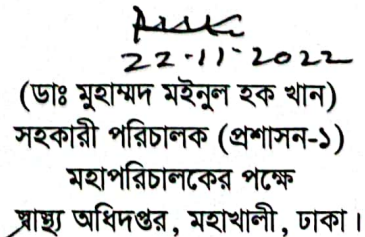 22-11-2022
(ডাঃ মুহাম্মদ মইনুল হক খান)
সহকারী পরিচালক (প্রশাসন-১)
মহাপরিচালকের পক্ষে
স্বাস্থ্য অধিদপ্তর, মহাখালী, ঢাকা।